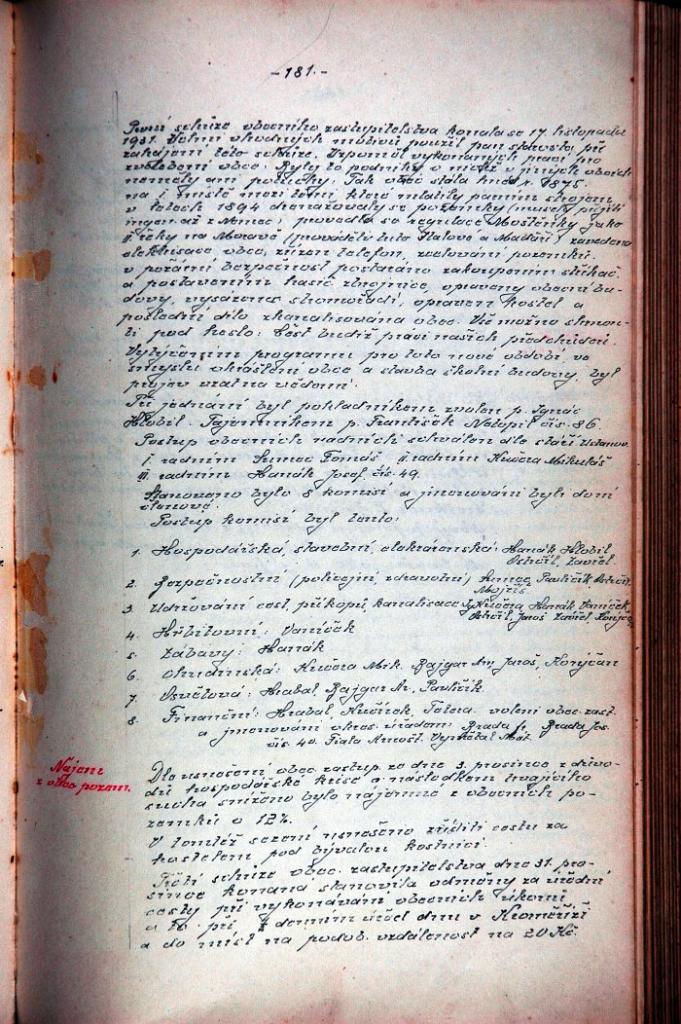 -181.-
První schůze obecního zastupitelstva konala se 17. listopadu
1931. Volní vhodných motivů použil pan starosta při
zahájení této schůze. Vzpomněl vykonaných prací pro
zvelebení obce. Byly to podniky o nichž v jiných obcích
neměly ani potuchy. Tak obec stála hned r. 1875.
na místě mezi těmi, které mlátily parním strojem
v letech 1894 drenážovaly se pozemky (musely přijíti
ingen. až z Němec), provedla se regulace Moštěnky jako
II. řeky na Moravě (prováděli tuto Italové a Maďaři) zavedena
elektrisace obce, zřízen telefon, scelování pozemků.
v požární bezpečnost postaráno zakoupením stříkač.
a postavením hasič. zbrojnice, opraveny obecní bu-
dovy, vysázeno stromořadí, opraven kostel a
poslední dílo zkanalisována obec. Vše možno shrnou-
ti pod heslo: Čest budiž práci našich předchůdců.
Vytýčeným programem pro toto nové období ve
smyslu okrášlení obce a stavba školní budovy, byl
projev vzat na vědomí.
Při jednání byl pokladníkem zvolen p. Ignác
Hlobil. Tajemníkem p. František Netopil čís. 86.
Postup obecních radních schválen dle stáří. Ustanov.
I. radním Sumec Tomáš II. radním Kučera Mikuláš
III. radním Hanák Josef. čís. 49.
Stanoveno bylo 8 komisí a jmenováni byli do ní
členové.
Postup komisí byl tento:
1. Hospodářská, stavební, elektrárenská: Hanák Hlobil
Schořil, Zavřel.
2. Bezpečnostní (policejní, zdravotní) Sumec Pavličík
3. Udržování cest, příkopů, kanalisace: Kučera, Hanák Vaníček,
Jaroš Zavřel
4. Hřbitovní: Vaníček
5. Zábavy: Hanák
6. Chudinská: Kučera Mik. Bajgar An. Jaroš, Konyčan
7. Osvětová: Hrabal, Bajgar Ar., Pavličík.
8. Finanční: Hrabal, Kučírek, voleni obec. zast.
a jmenováni okres. úřadem: Brada fr. Brada Jos.
čís. 40. Fiala Arnošt.
Nájem
z obec. pozem.
Dle usnesení obec. zastup. ze dne 3. prosince z důvo-
dů hospodářské krise a následkem trvajícího
sucha sníženo bylo nájemné z obecních po-
zemků o 12%.
V tomtéž sezení usneseno zříditi cestu za
kostelem, pod bývalou kostnicí.
Třetí schůze obec. zastupitelstva dne 31. pro-
since konaná stanovila odměny za úřední
cesty při vykonávání obecních úkonů
a to při denním účel dnu v Kroměříži
a do míst na podob. vzdálenost na 20 Kč.